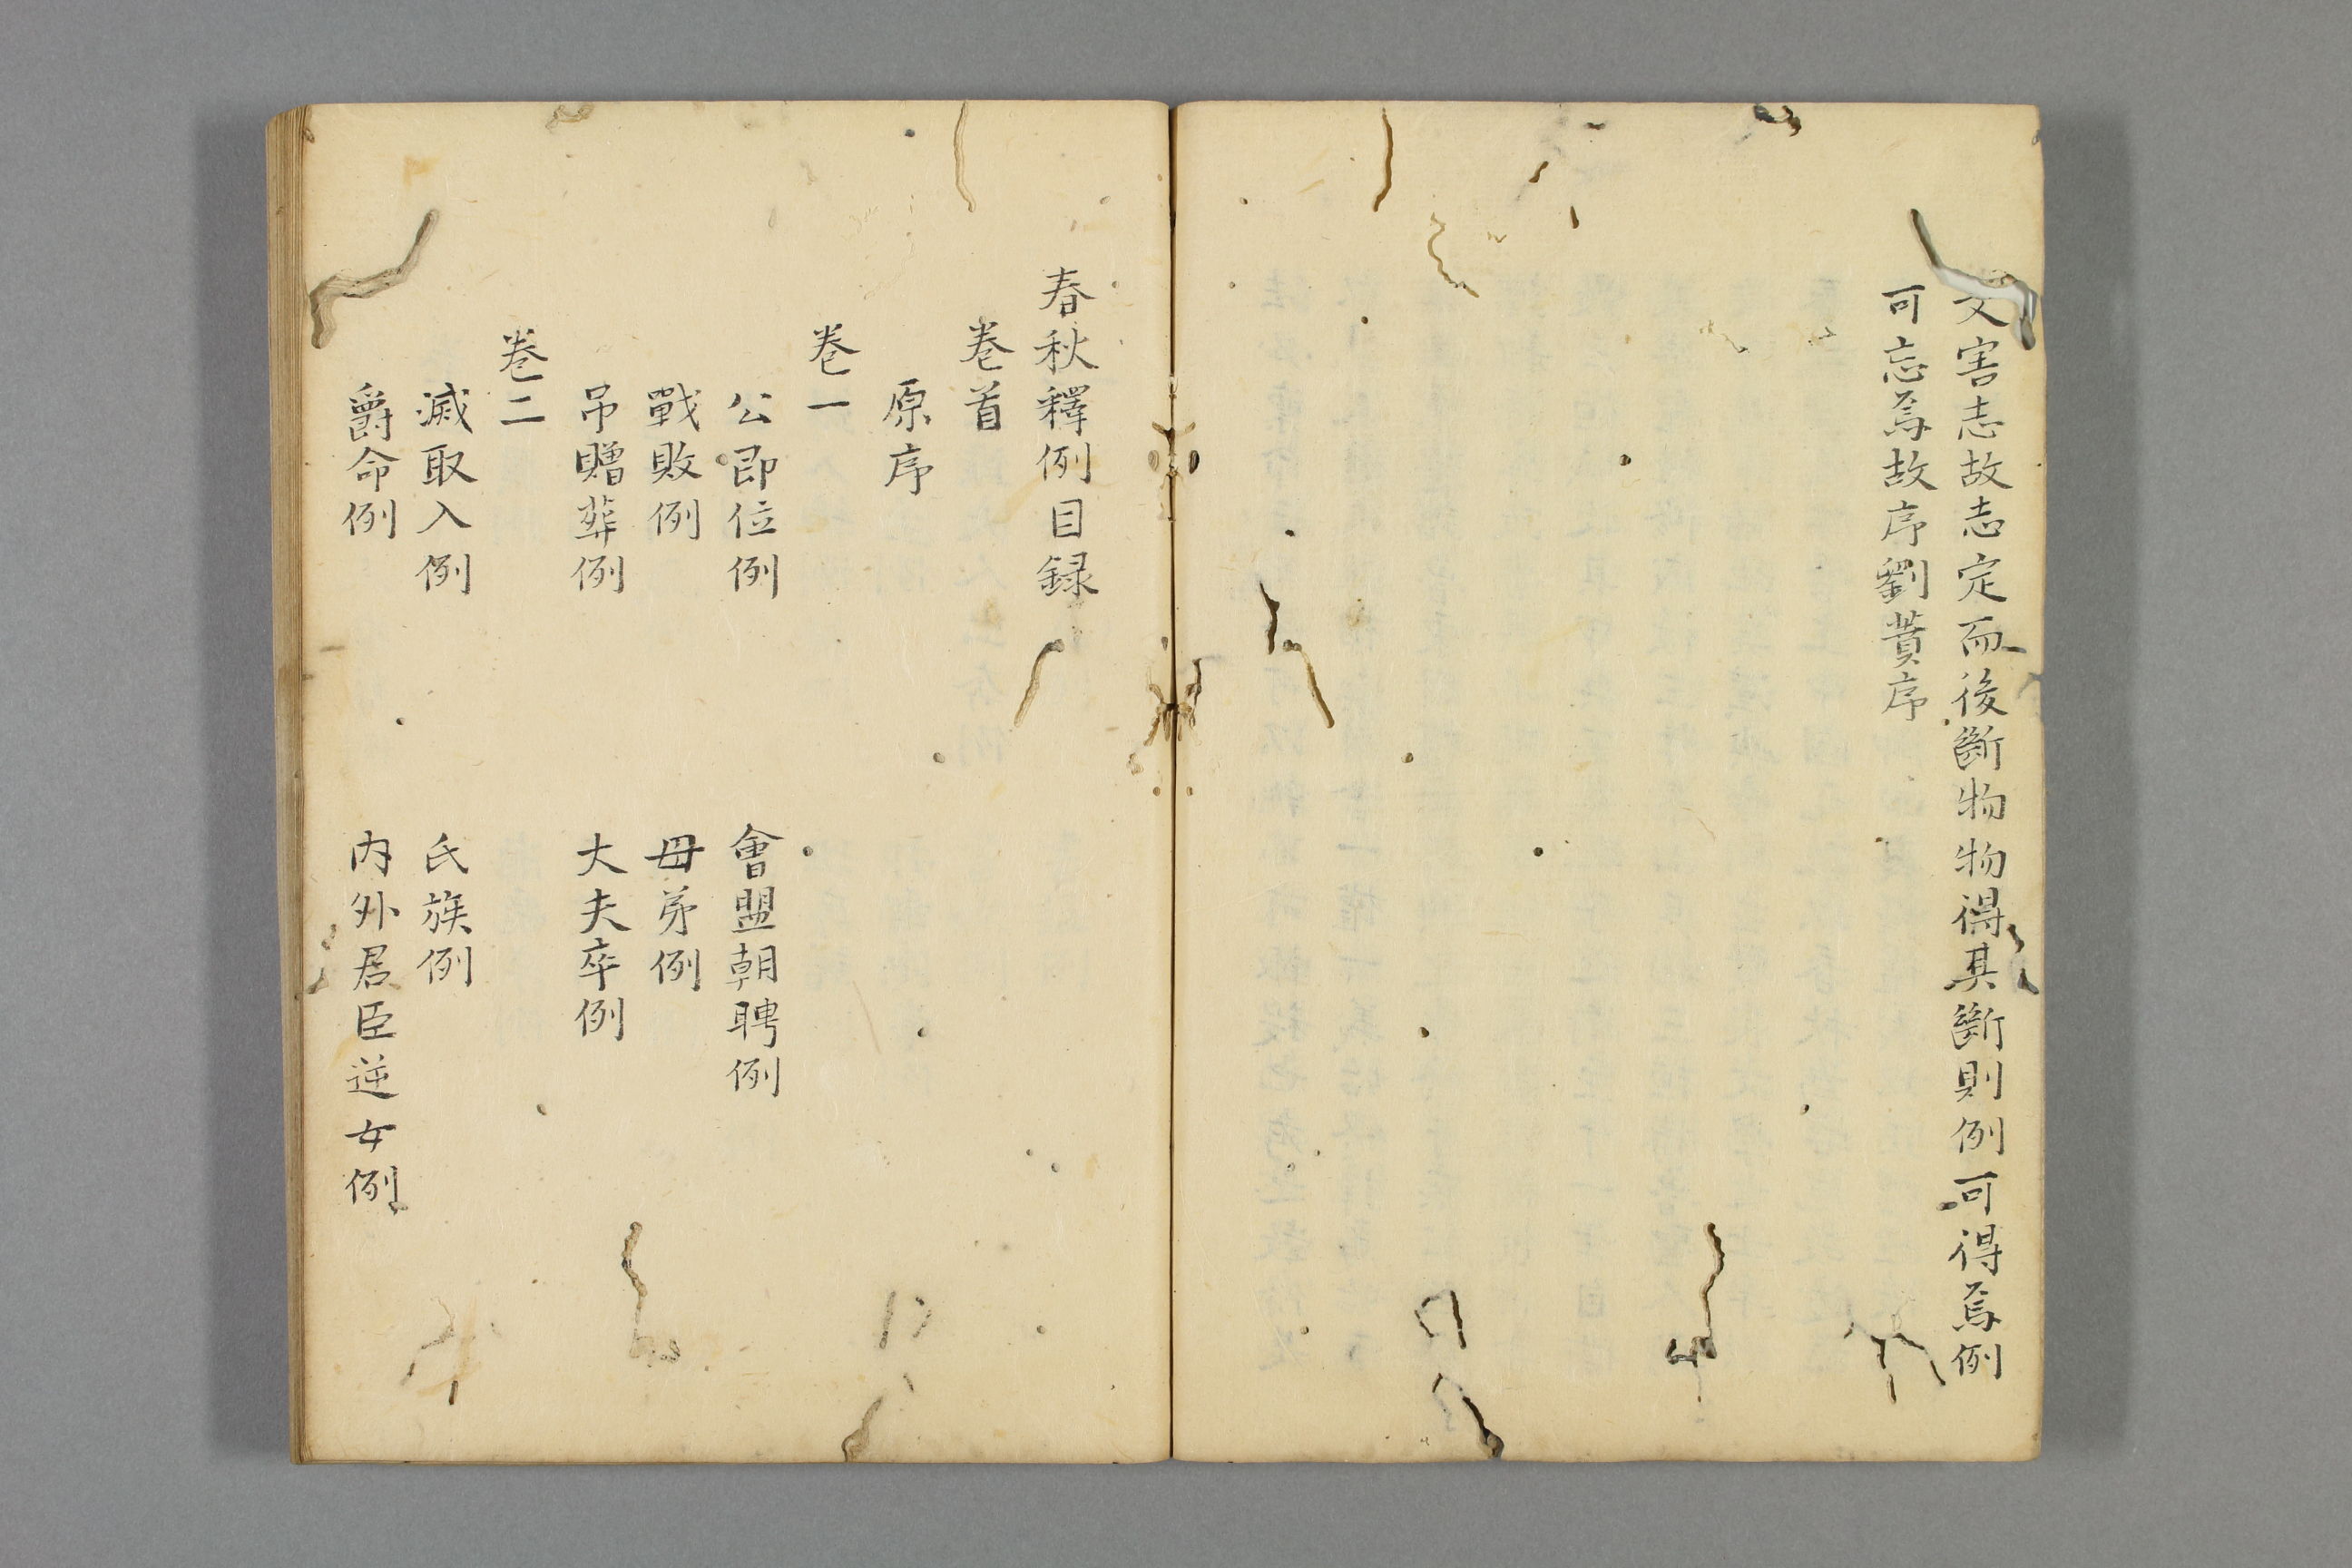 文害志故志定而後斷物物得其斷則例可得焉例
可忘焉故序劉蕡序
春秋釋例目録
卷首
原序
卷一
公即位例 會盟朝聘例
戰敗例 母弟例
吊贈葬例 大夫卒例
卷二
滅取入例 氏族例
爵命例 内外君臣逆女例